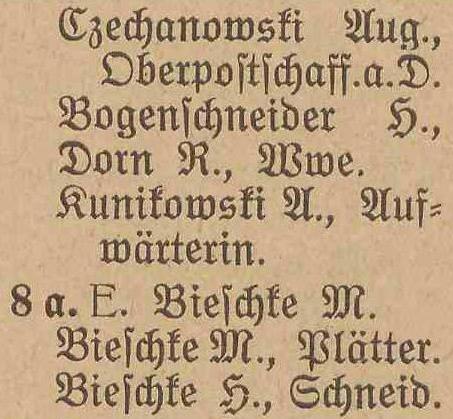 Czechanowski Aug.,
Oberpostschaff.a.D.
Bogenschneider H.,
Dorn R., Wwe.
Kunikowski A., Auf-
wärterin.
8 a. E. Bieschke M.
Bieschke M., Plätter.
Bieschke H., Schneid.